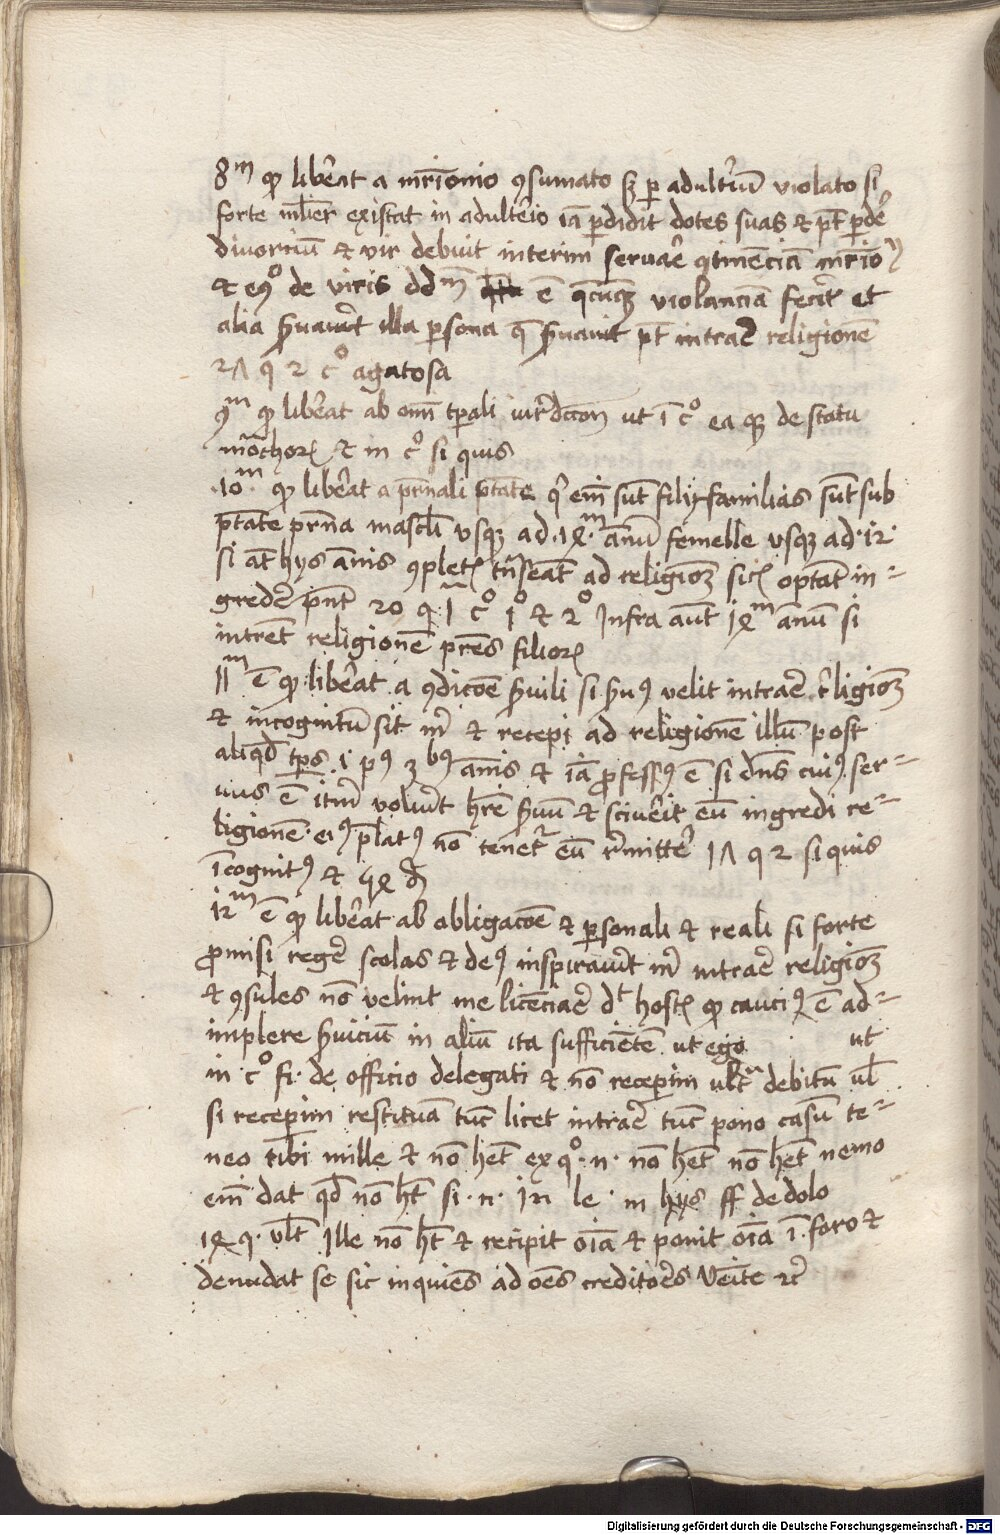 8m qp liberat a mrimonio 9sumato sz per adulteriu violato si
forte mlier existat in adulterio ia perdidit dotes suas et pt perde
divorciu et vir debuit interim servare 9tinencia mrio
et eqo de viris e qcunqz violancia fecit et
alia servaverit illa persona q servavit pt intrare religione
27 q 2 co agatosa
9m qp liberat ab omi tperali iurisdccon ut i co ea qz de statu
monchorz et in co si quis
10m qp liberat a prnali ptate qr em sut filiifamilias sut sub
ptate prna mascli usqz ad 14m annu femelle usqz ad 12
si at hys annis 9pletz tnseat ad religioz optat in=
gredi pnt 20 q 1 co 1o et 2o Infra aut 14m annu si
intret religione pres filiorz
11m e qp liberat a 9dicoe servili si servus velit intrare religioz
et incognitu sit mr et recepi ad religione illu post
aliqd tps 3bus annis et ia professus e si dns cuius ser=
vus e iteru voluerit here servu et sciverit eu ingredi re=
ligione eius platus no tenetr eu remittere 17 q 2 si quis
icognitus et 54 di
12m e qp liberat ab obligacoe et personali et reali si forte
promisi regere scolas et deus inspiraverit mr intrare religioz
et 9sules no velint me licenciare dt hostz qp e ad=
implere serviciu in aliu ita sufficiete ut ego ut
in co fi de officio delegati et no receperim debitu vl
si receperim restitua tuc licet intrare tuc pono casu te=
neo tibi mille et no het ex qo n no het no het nemo
em dat qd no ht si n in le in hys ff de dolo
14 q vlt Ille no ht et recipit oia et ponit oia i foro et
denudat se sic inquiens ad oes creditores Veite rc
Digitalisierung gefördert durch die Deutsche Forschungsgemeinschaft - DFG